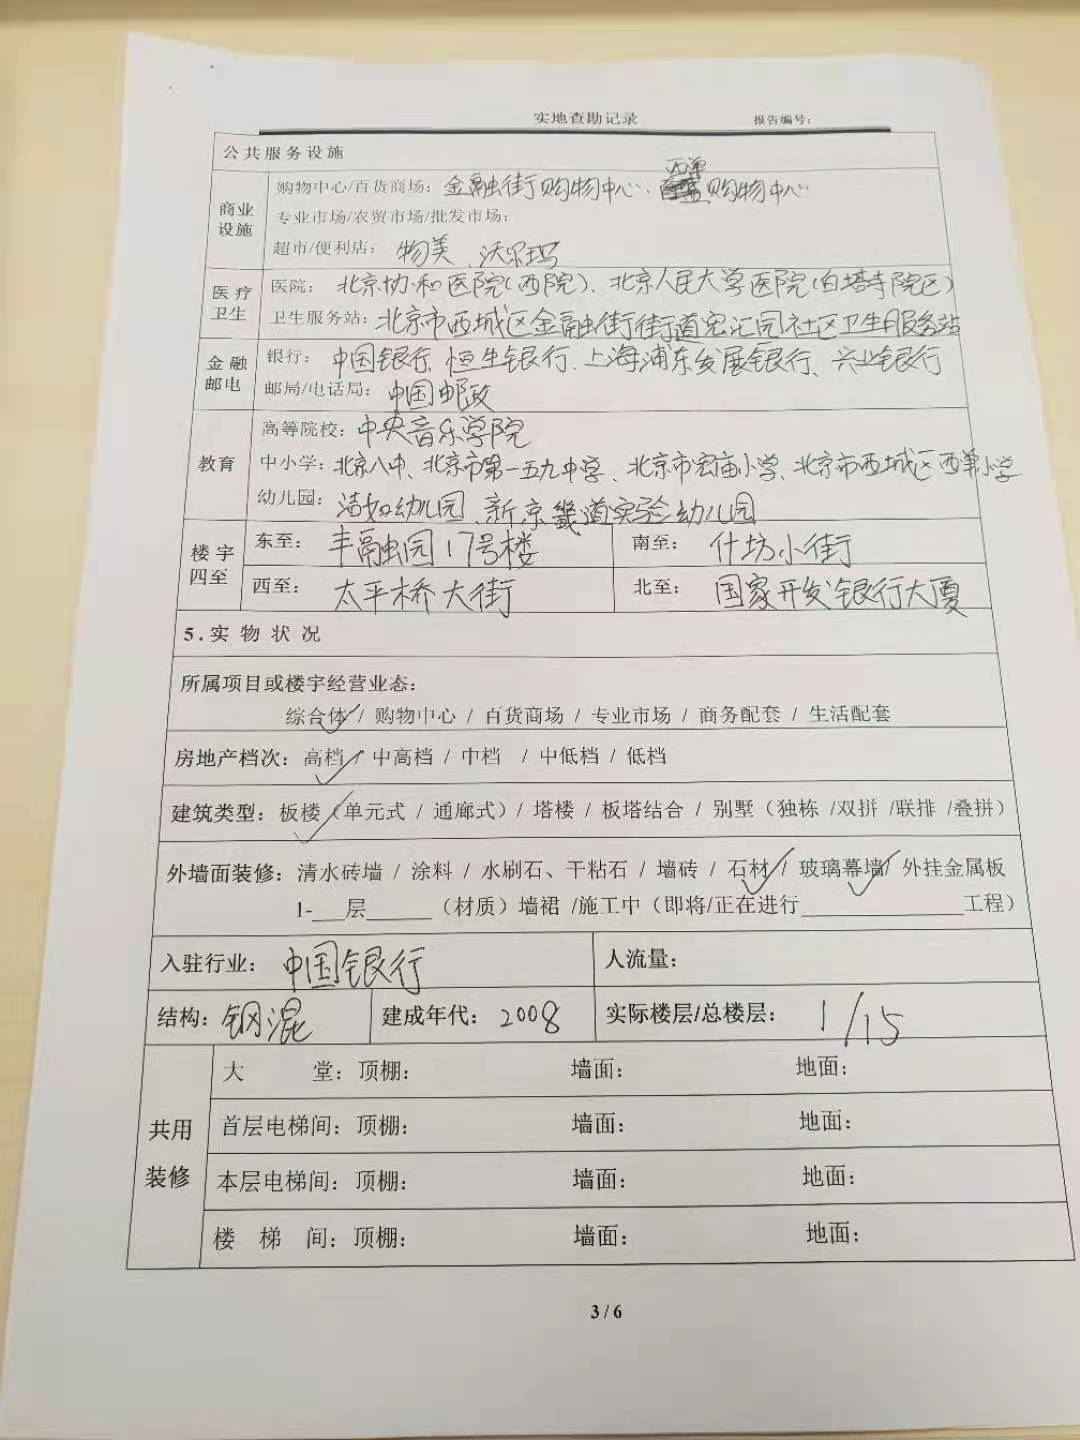 实地查勘记录 报告编号:
公共服务设施
商业设施
购物中心/百货商场: 金融街购物中心、西单购物中心
专业市场/农贸市场/批发市场:
超市/便利店: 物美、沃尔玛
医疗卫生
医院: 北京协和医院(西院)、北京人民大学医院(白塔寺院区)
卫生服务站: 北京市西城区金融街街道宏汇园社区卫生服务站
金融邮电
银行: 中国银行、恒生银行、上海浦东发展银行、兴业银行
邮局/电话局: 中国邮政
教育
高等院校: 中央音乐学院
中小学: 北京八中、北京市第一五九中学、北京市宏庙小学、北京市西城区西单小学
幼儿园: 洁如幼儿园、新京畿道实验幼儿园
楼宇四至
东至: 丰融园17号楼 南至: 什坊小街
西至: 太平桥大街 北至: 国家开发银行大厦
5.实物状况
所属项目或楼宇经营业态:
综合体 / 购物中心 / 百货商场 / 专业市场 / 商务配套 / 生活配套
房地产档次: 高档 / 中高档 / 中档 / 中低档 / 低档
建筑类型: 板楼 (单元式 / 通廊式) / 塔楼 / 板塔结合 / 别墅 (独栋 /双拼 /联排 /叠拼)
外墙面装修: 清水砖墙 / 涂料 / 水刷石、干粘石 / 墙砖 / 石材 / 玻璃幕墙/ 外挂金属板
1-___层______ (材质) 墙裙 /施工中 (即将/正在进行_______________工程)
入驻行业: 中国银行 人流量:
结构: 钢混 建成年代: 2008 实际楼层/总楼层: 1/15
共用装修
大堂: 顶棚: 墙面: 地面:
首层电梯间: 顶棚: 墙面: 地面:
本层电梯间: 顶棚: 墙面: 地面:
楼梯间: 顶棚: 墙面: 地面:
3 / 6